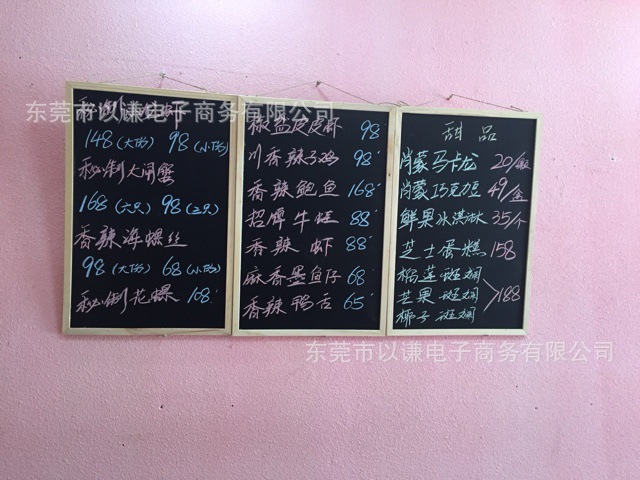 东莞市以谦电子商务有限公司
148(大的) 98(小的)
秘制大闸蟹
168(六只) 98(三只)
香辣海螺丝
98(大的) 68(小的)
秘制花螺 108
椒盐皮皮虾 98
川香辣子鸡 98
香辣鲍鱼 168
招牌牛蛙 88
香辣虾 88
麻香墨鱼仔 68
香辣鸭舌 65
甜品
肖蒙马卡龙 20/
肖蒙巧克力豆 49/盒
鲜果冰淇淋 35/个
芝士蛋糕 158
榴莲斑斓
芒果斑斓 188
椰子斑斓
东莞市以谦电子商务有限公司